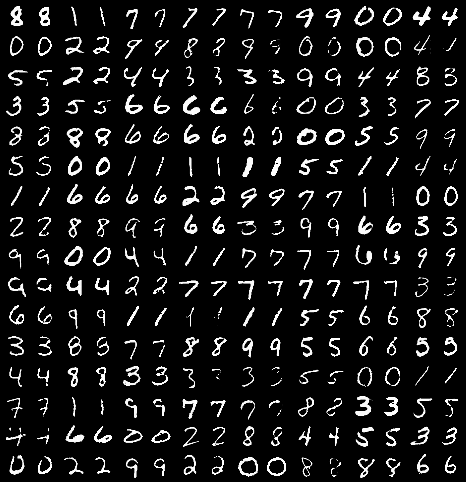 8 8 1 1 7 7 7 7 7 7 9 9 0 0 4 4
0 0 2 2 9 9 8 8 9 9 0 0 0 0 4 1
5 5 2 2 4 4 3 3 3 3 9 9 4 4 8 8
3 3 5 5 6 6 6 6 6 6 0 0 3 3 7 7
8 8 8 8 6 6 6 6 2 2 0 0 5 5 9 9
5 5 0 0 1 1 1 1 1 1 5 5 1 1 4 4
1 1 6 6 6 6 2 2 9 9 7 7 1 1 0 0
2 2 8 8 9 9 6 6 3 3 9 9 6 6 3 3
9 9 0 0 4 4 1 1 7 7 7 7 6 6 9 9
9 9 4 4 2 2 7 7 7 7 7 7 7 7 3 3
6 6 9 9 1 1 1 1 1 1 5 5 6 6 8 8
3 3 8 8 7 7 8 8 9 9 5 5 6 6 5 5
4 4 8 8 3 3 3 3 3 3 5 5 0 0 1 1
7 7 1 1 9 9 7 7 7 7 8 8 3 3 5 5
6 6 0 0 2 2 8 8 4 4 5 5 3 3
0 0 2 2 9 9 2 2 0 0 8 8 8 8 6 6